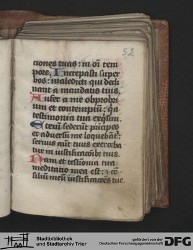 52
ciones tuas: in om̄ tem
pore. Increpasti super
bos: maledicti qui decli
nant a mandatis tuis.
Aufer a me obprobriu
m et contemptū: qa
testimonia tua exqsiui.
Etenī sederūt prīcipes
et aduersū me loquebāt
seruus aut tuus exercēba
tur in iustificatōibȝ tuis.
Nam et testīonia tua
meditatio mea est: 
siliū meū iustificatōes tue.
Stadtbibliothek
und Stadtarchiv Trier
gefördert von der
Deutschen Forschungsgemeinschaft
DFG